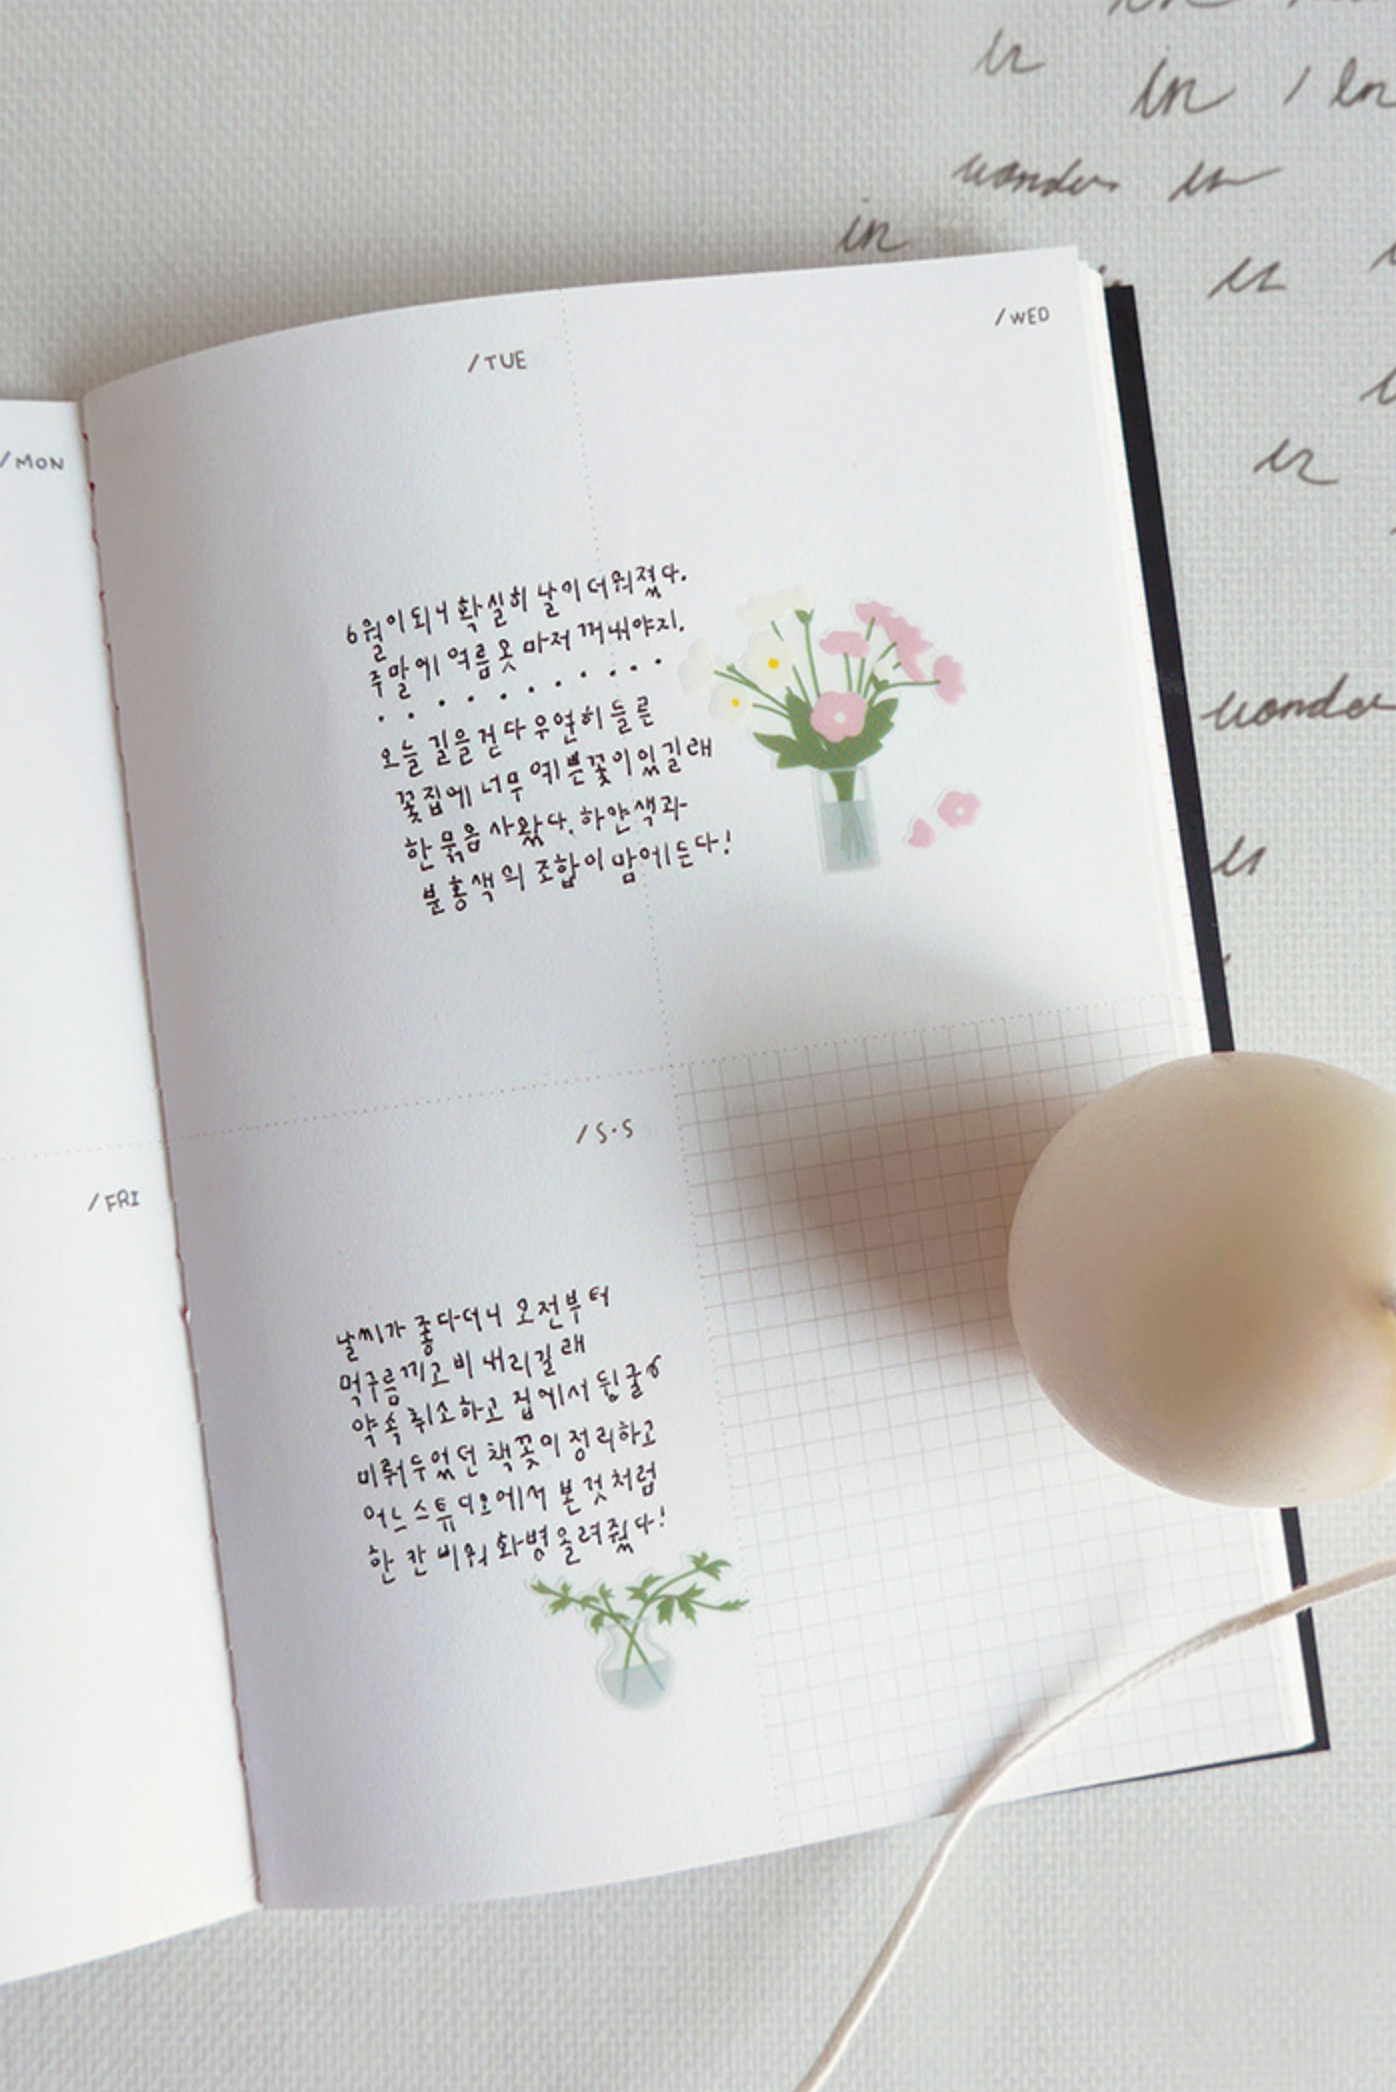 in
in
in / in
wonder in
in
in
/WED
/TUE
/MON
in
6월이 되니 확실히 날이 더워졌다.
주말에 여름옷 마저 꺼내야지.
. . . . . . . . . . .
오늘 길을 걷다 우연히 들른
꽃집에 너무 예쁜 꽃이 있길래
한 묶음 사왔다. 하얀색과
분홍색의 조합이 맘에 든다!
wonder
in
/S·S
/FRI
날씨가 좋다더니 오전부터
먹구름 끼고 비 내리길래
약속 취소하고 집에서 뒹굴
미뤄두었던 책꽂이 정리하고
어느 스튜디오에서 본 것처럼
한 칸 비워 화병 올려줬다!